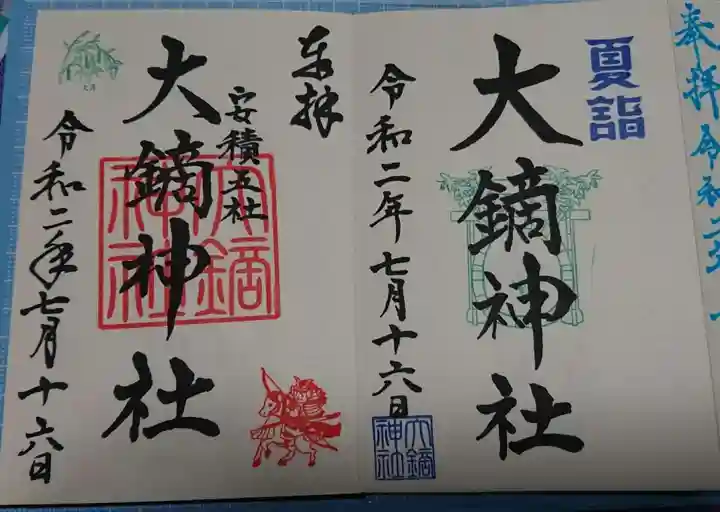 奉拝 令和二
夏詣
大鏑神社
令和二年七月十六日
大鏑神社
奉拝
安積五社
大鏑神社
大鏑神社
令和二年七月十六日